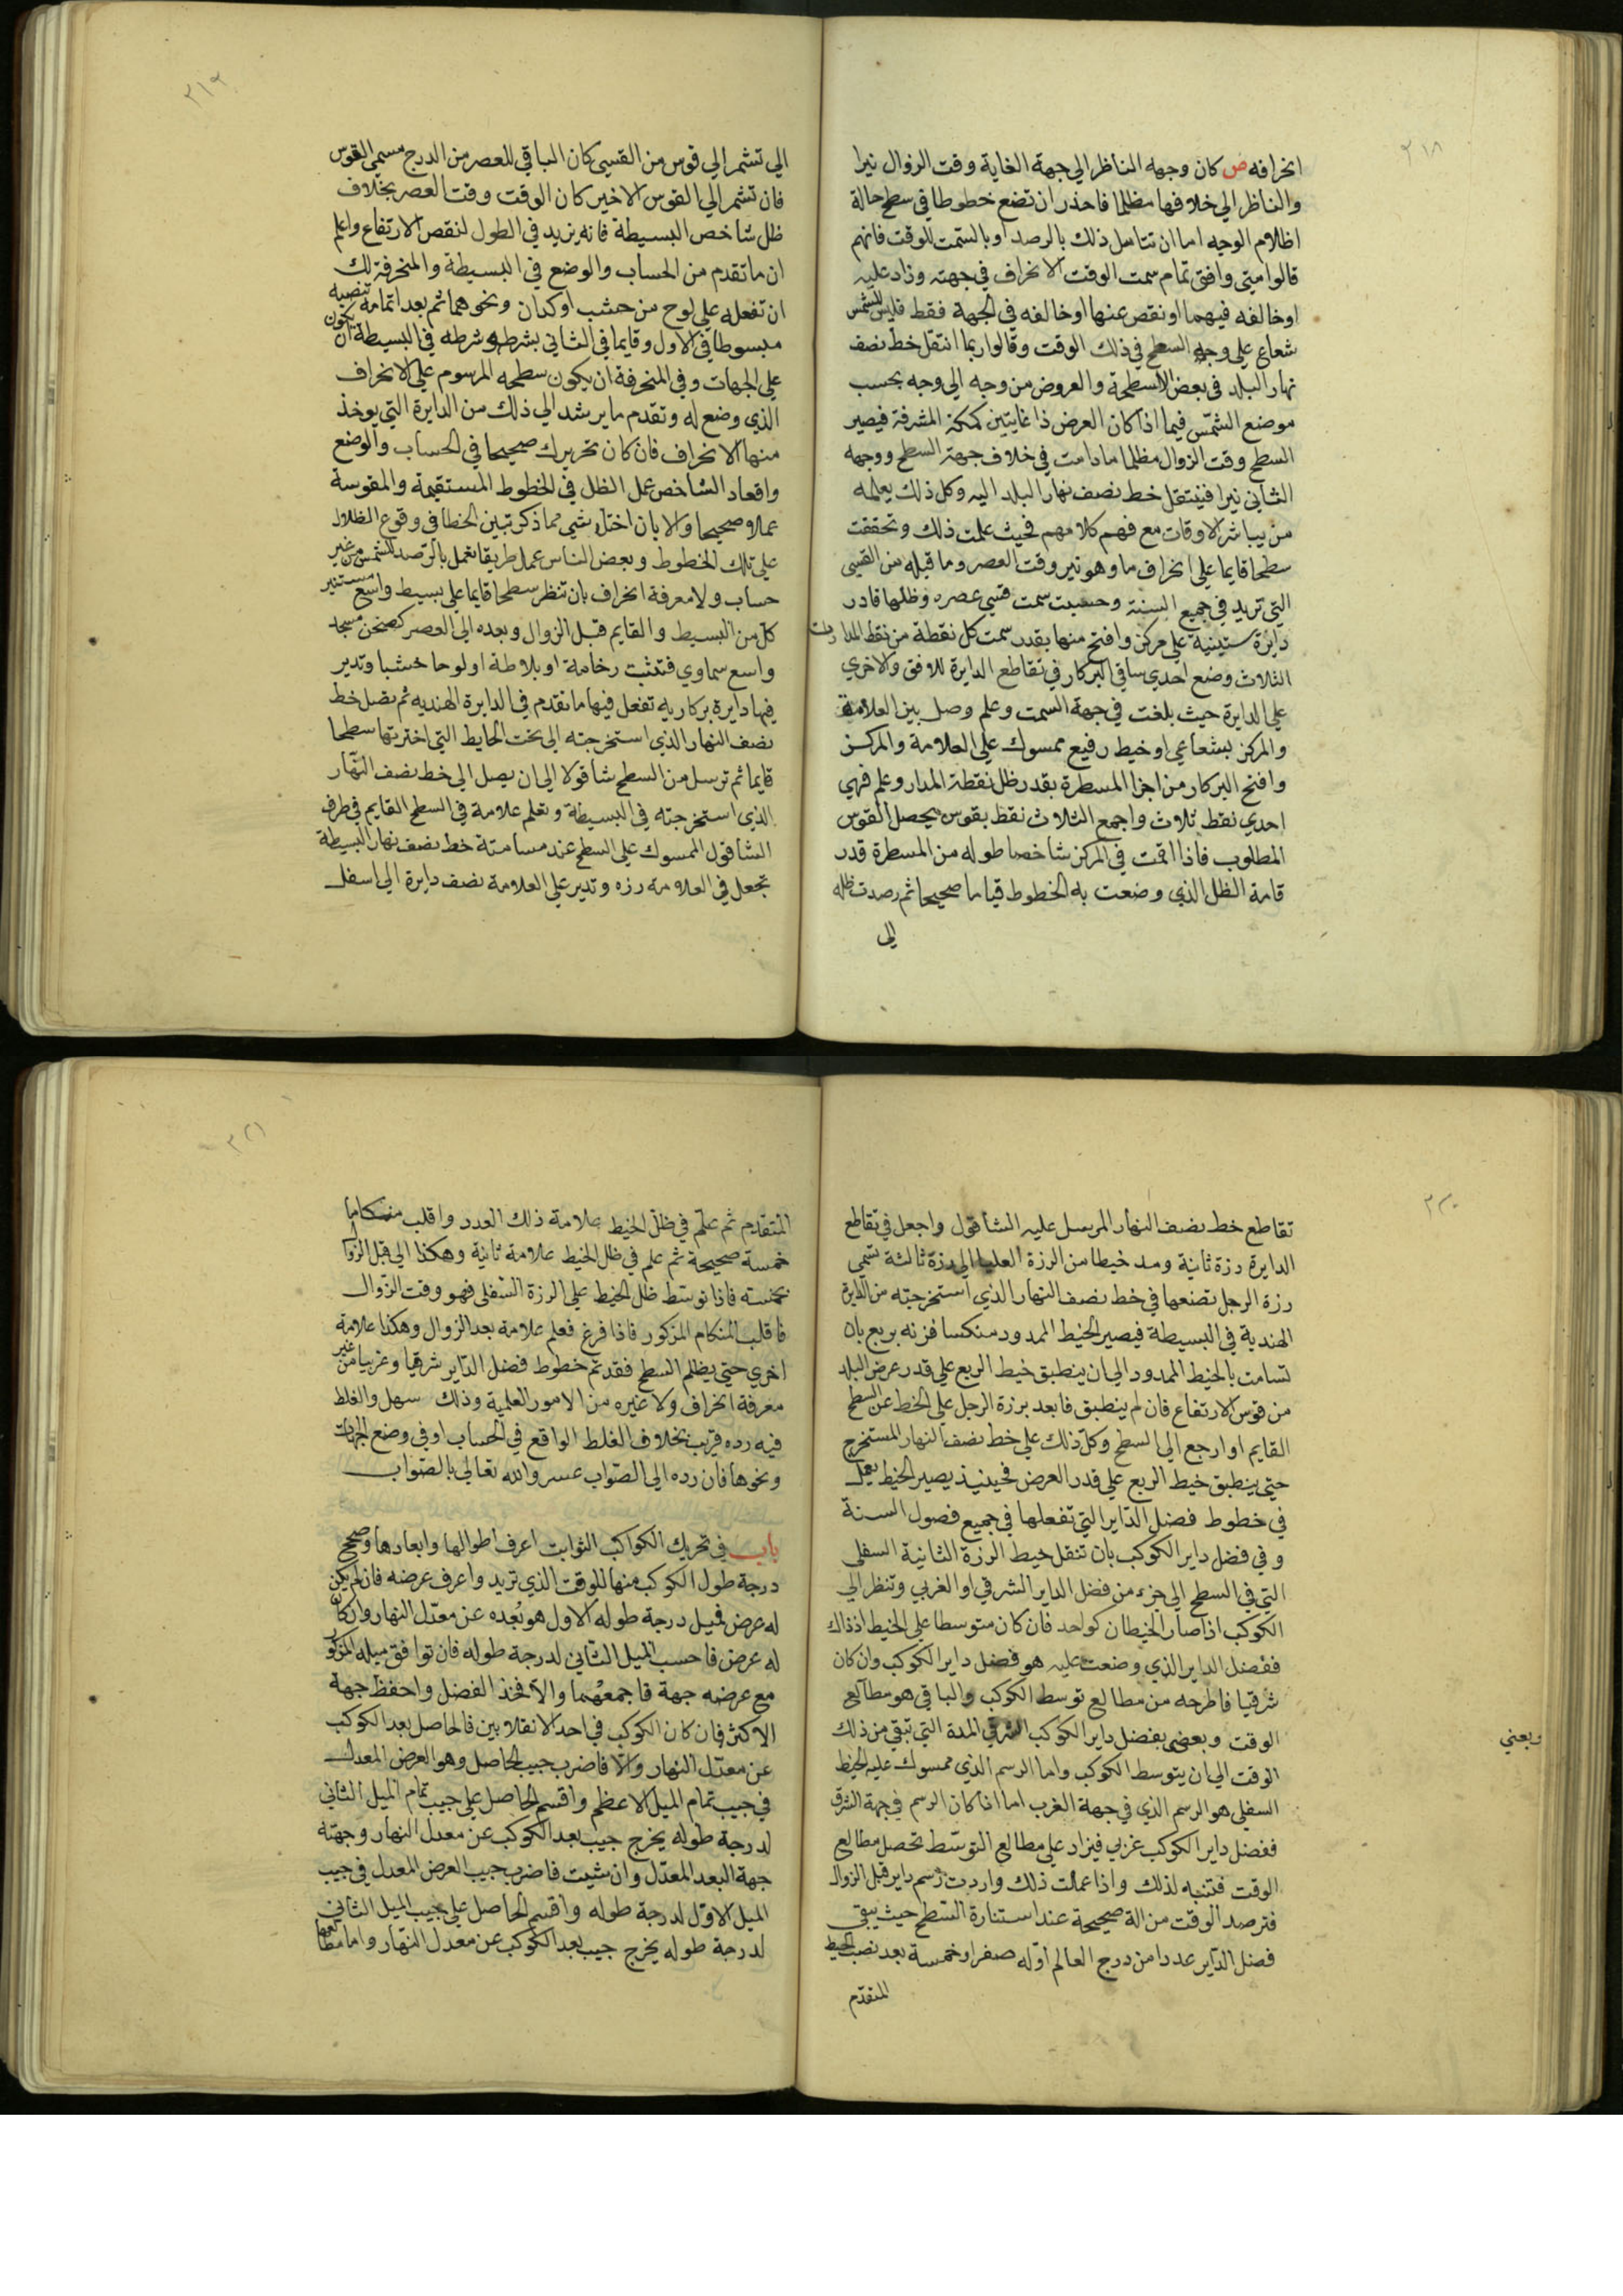 ٣١٨
انحرافه ص كان وجهه الناظر الي جهة الغاية وقت الزوال نيرا
والناظر الي خلافها مظلما فاحذر ان تضع خطوطا في سطح حالة
اظلام الوجيه اما ان تتامل ذلك بالرصد او بالسمت للوقت فانهم
قالوا متي وافق تمام سمت الوقت الانحراف في جهته وزاد عليه
او خالفه فيهما او نقص عنها او خالفه في الجهة فقط فليس للشمس
شعاع علي وجه السطح في ذلك الوقت وقالوا ربما انتقل خط نصف
نهار البلد في بعض الاسطحة والعروض من وجه الي وجه بحسب
موضع الشمس فيما اذا كان العرض ذا غايتين كمكة المشرفة فيصير
السطح وقت الزوال مظلما مادامت في خلاف جهة السطح ووجهه
الثاني نيرا فينتقل خط نصف نهار البلد اليه وكل ذلك يعلمه
من يباشر الاوقات مع فهم كلامهم فحيث علمت ذلك وتحققت
سطحا قايما علي انحراف ما وهو نير وقت العصر وما قبله من القسي
التي تريد في جميع السنة وحسبت سمت قسي عصره وظلها فادر
دائرة ستينية علي مركز وافتح منها بقدر سمت كل نقطة من نقط المدارات
الثلاث وضع احدي ساقي البركار في تقاطع الدايرة للافق والاخري
علي الدايرة حيث بلغت في جهة السمت وعلم وصل بين العلامة
والمركز بشعاعي او خيط رفيع ممسوك علي العلامة والمركز
وافتح البركار من اجزا المسطرة بقدر ظل نقطة المدار وعلم فهي
احدي نقط ثلاث واجمع الثلاث نقط بقوس يحصل القوس
المطلوب فاذا اقمت في المركز شاخصا طوله من المسطرة قدر
قامة الظل الذي وضعت به الخطوط قياما صحيحا ثم رصدت ظله
الى
٣١٩
الي تشمر الي قوس من القسي كان الباقي للعصر من الدرج مسمي القوس
فان تشمر الي القوس الاخير كان الوقت وقت العصر بخلاف
ظل شاخص البسيطة فانه يزيد في الطول لنقص الارتفاع واعلم
ان ما تقدم من الحساب والوضع في البسيطة والمنحرفة لك
ان تفعله علي لوح من خشب او كدان ونحوهما ثم بعد اتمامه تنصبه
مبسوطا في الاول وقايما في الثاني بشرطه وشرطه في البسيطة ان يكون
علي الجهات وفي المنحرفة ان يكون سطحه المرسوم علي الانحراف
الذي وضع له وتقدم ما يرشد الي ذلك من الدايرة التي يوخذ
منها الانحراف فان كان تحريرك صحيحا في الحساب والوضع
واقعاد الشاخص عمل الظل في الخطوط المستقيمة والمقوسة
عملا صحيحا والا بان اختل شي مما ذكر تبين الخطا في وقوع الظلال
علي تلك الخطوط وبعض الناس عمل طريقا تعمل بالرصد للشمس من غير
حساب ولا معرفة انحراف بان تنظر سطحا قايما علي بسيط واسع مستنير
كل من البسيط والقايم قبل الزوال وبعده الي العصر كصحن مسجد
واسع سماوي فتثبت رخامة او بلاطة او لوحا خشبا وتدير
فيها دايرة بركاريه تفعل فيها ما تقدم في الدايرة الهنديه ثم تصل خط
نصف النهار الذي استخرجته الي تحت الحايط التي اخترتها سطحا
قايما ثم ترسل من السطح شاقولا الي ان يصل الي خط نصف النهار
الذي استخرجته في البسيطة وتعلم علامة في السطح القايم في طرف
الشاقول الممسوك علي السطح عند مسامتة خط نصف نهار البسيطة
تجعل في العلامة رزه وتدير علي العلامة نصف دايرة الي اسفل
٣٢٠
تقاطع خط نصف النهار المرسل عليه الشاقول واجعل في تقاطع
الدايرة رزة ثانية ومد خيطا من الرزة العليا الي رزة ثالثة تسمي
رزة الرجل تضعها في خط نصف النهار الذي استخرجته من الدايرة
الهندية في البسيطة فيصير الخيط الممدود منكسا فزنه بربع بان
تسامت بالخيط الممدود الي ان ينطبق خيط الربع علي قدر عرض البلد
من قوس الارتفاع فان لم ينطبق فابعد برزة الرجل علي الخط عن السطح
القايم او ارجع الي السطح وكل ذلك علي خط نصف النهار المستخرج
حتي ينطبق خيط الربع علي قدر العرض فحينيذ يصير الخيط يعمل
في خطوط فضل الداير التي تفعلها في جميع فصول السنة
وفي فضل داير الكوكب بان تنقل خيط الرزة الثانية السفلي
التي في السطح الي جزء من فضل الداير الشرقي او الغربي وتنظر الي
الكوكب اذا صار الخيطان كواحد فان كان متوسطا علي الخيط اذ ذاك
ففضل الداير الذي وضعت عليه هو فضل داير الكوكب وان كان
شرقيا فاطرحه من مطالع توسط الكوكب والباقي هو مطالع
الوقت وبعضي بفضل داير الكوكب الشرقي المدة التي تبقي من ذلك
ويعني
الوقت الي ان يتوسط الكوكب واما الرسم الذي ممسوك عليه الخيط
السفلي هو الرسم الذي في جهة الغرب اما اذا كان الرسم في جهة الشرق
ففضل داير الكوكب غربي فيزاد علي مطالع التوسط تحصل مطالع
الوقت فتنبه لذلك واذا عملت ذلك واردت رسم داير قبل الزوال
فترصد الوقت من الة صحيحة عند استنارة السطح حيث يبقي
فضل الداير عددا من درج العالم اوله صفر او خمسة بعد نصب الخيط
المتقدم
٣٢١
المتقدم ثم علم في ظل الخيط علامة ذلك العدد واقلب منكاما
خمسة صحيحة ثم علم في ظل الخيط علامة ثانية وهكذا الي قبل الزوال
بخمسة فاذا توسط ظل الخيط علي الرزة السفلي فهو وقت الزوال
فاقلب المنكام المزكور فاذا فرغ فعلم علامة بعد الزوال وهكذا علامة
اخري حتي يظلم السطح فقد تم خطوط فضل الداير شرقيا وغربيا من غير
معرفة انحراف ولا غيره من الامور العلمية وذلك سهل والغلط
فيه رده قريب بخلاف الغلط الواقع في الحساب او في وضع الجهات
ونحوها فان رده الي الصواب عسر والله تعالي بالصواب
باب في تحريك الكواكب الثوابت اعرف اطوالها وابعادها وصحح
درجة طول الكوكب منها للوقت الذي تريد واعرف عرضه فان لم يكن
له عرض فميل درجة طوله الاول هو بُعده عن معدل النهار وان كان
له عرض فاحسب الميل الثاني لدرجة طوله فان توافق ميله المزكور
مع عرضه جهة فاجمعهما والا فخذ الفضل واحفظ جهة
الاكثر فان كان الكوكب في احد الانقلابين فالحاصل بعد الكوكب
عن معدل النهار والا فاضرب جيب الحاصل وهو العرض المعدل
في جيب تمام الميل الاعظم واقسم الحاصل علي جيب تمام الميل الثاني
لدرجة طوله يخرج جيب بعد الكوكب عن معدل النهار وجهته
جهة البعد المعدل وان شيت فاضرب جيب العرض المعدل في جيب
الميل الاول لدرجة طوله واقسم الحاصل علي جيب الميل الثاني
لدرجة طوله يخرج جيب بعد الكوكب عن معدل النهار واما مطالعها